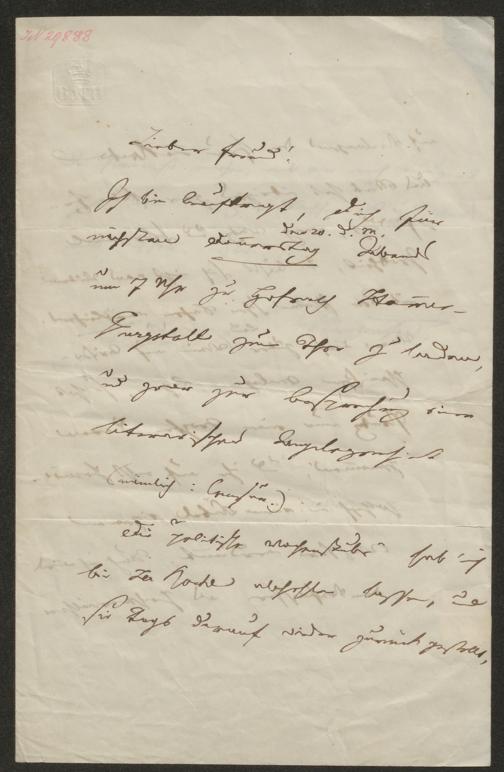 IN 29888
Lieber Freund!
Ich bin beauftragt, dich für
den 20. d. M.
nächsten Donnerstag Abends
um 7 Uhr zu Hofrath Hammer-
Purgstall zum Thee zu laden,
und zwar zur Besprechung einer
literarischen Angelegenheit
(nämlich: Censur.)
Die politische hab' ich
bis zur lassen, und
sie Tags darauf wieder zurückgestellt,